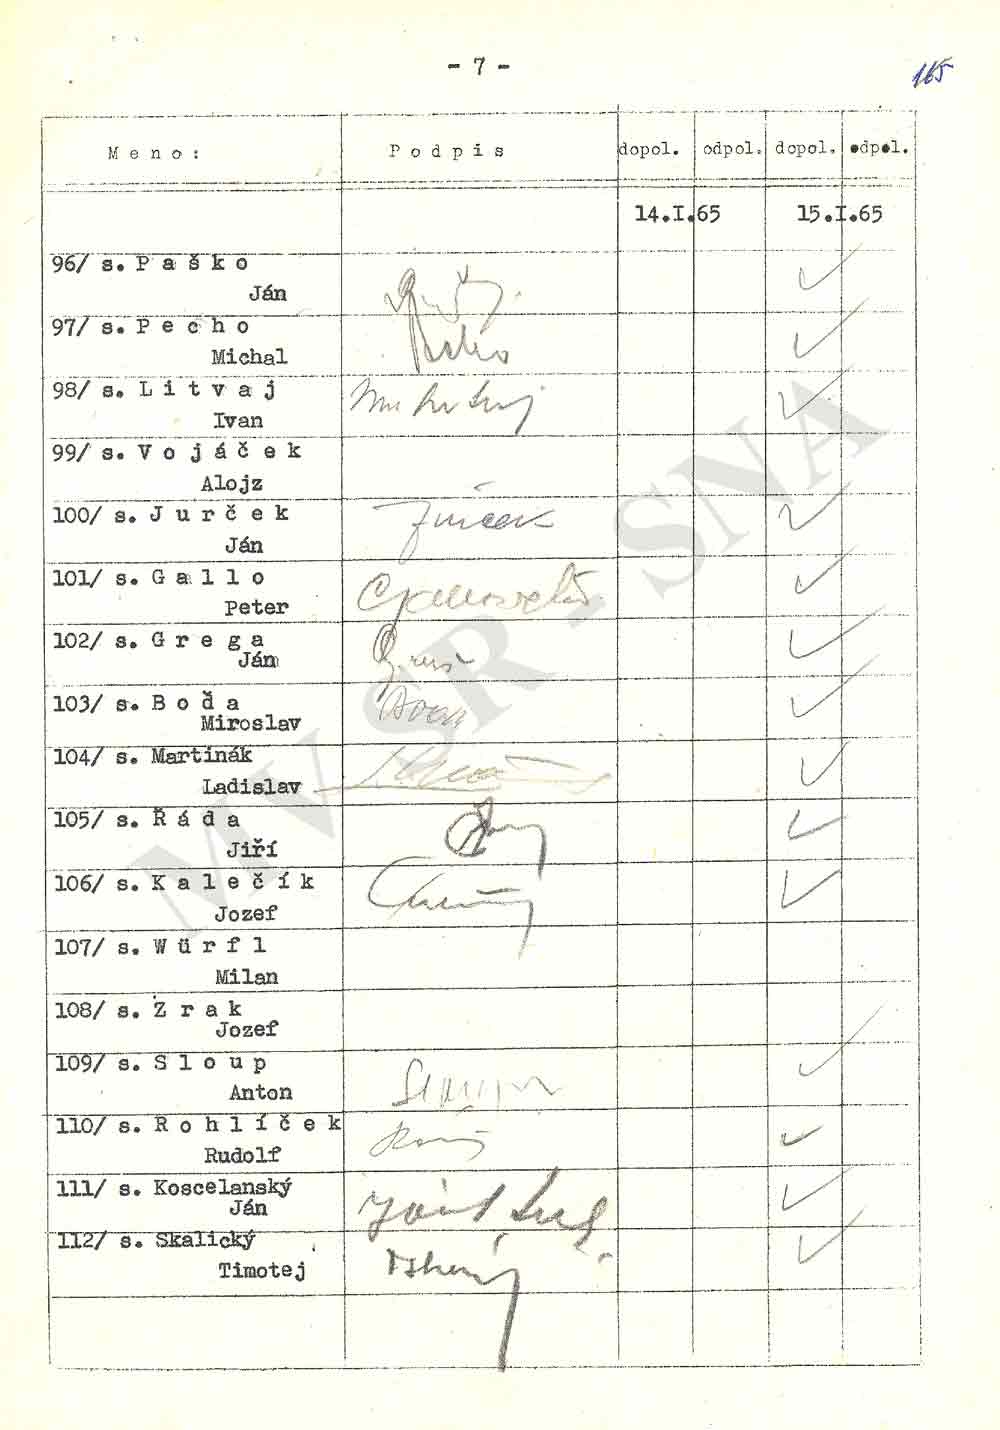 - 7 -
165
M e n o :
P o d p i s
dopol. odpol. dopol. odpol.
14.I.65 15.I.65
96/ s. P a š k o
Ján
97/ s. P e c h o
Michal
98/ s. L i t v a j
Ivan
99/ s. V o j á č e k
Alojz
100/ s. J u r č e k
Ján
Jurček
101/ s. G a l l o
Peter
102/ s. G r e g a
Ján
103/ s. B o ď a
Miroslav
104/ s. Martinák
Ladislav
105/ s. Ř á d a
Jiří
106/ s. K a l e č í k
Jozef
107/ s. W ü r f l
Milan
108/ s. Z r a k
Jozef
109/ s. S l o u p
Anton
110/ s. R o h l í č e k
Rudolf
111/ s. Koscelanský
Ján
112/ s. Skalický
Timotej
MV SR - SNA